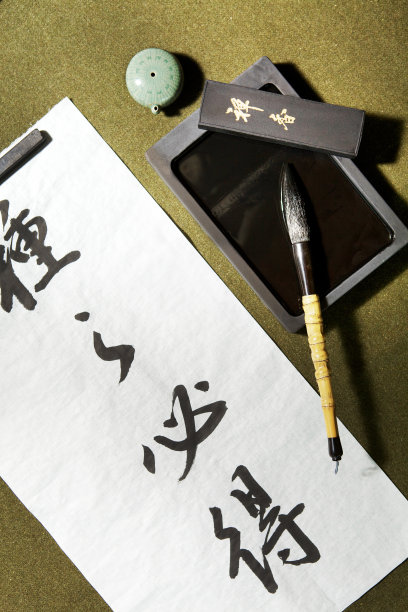 種之必得